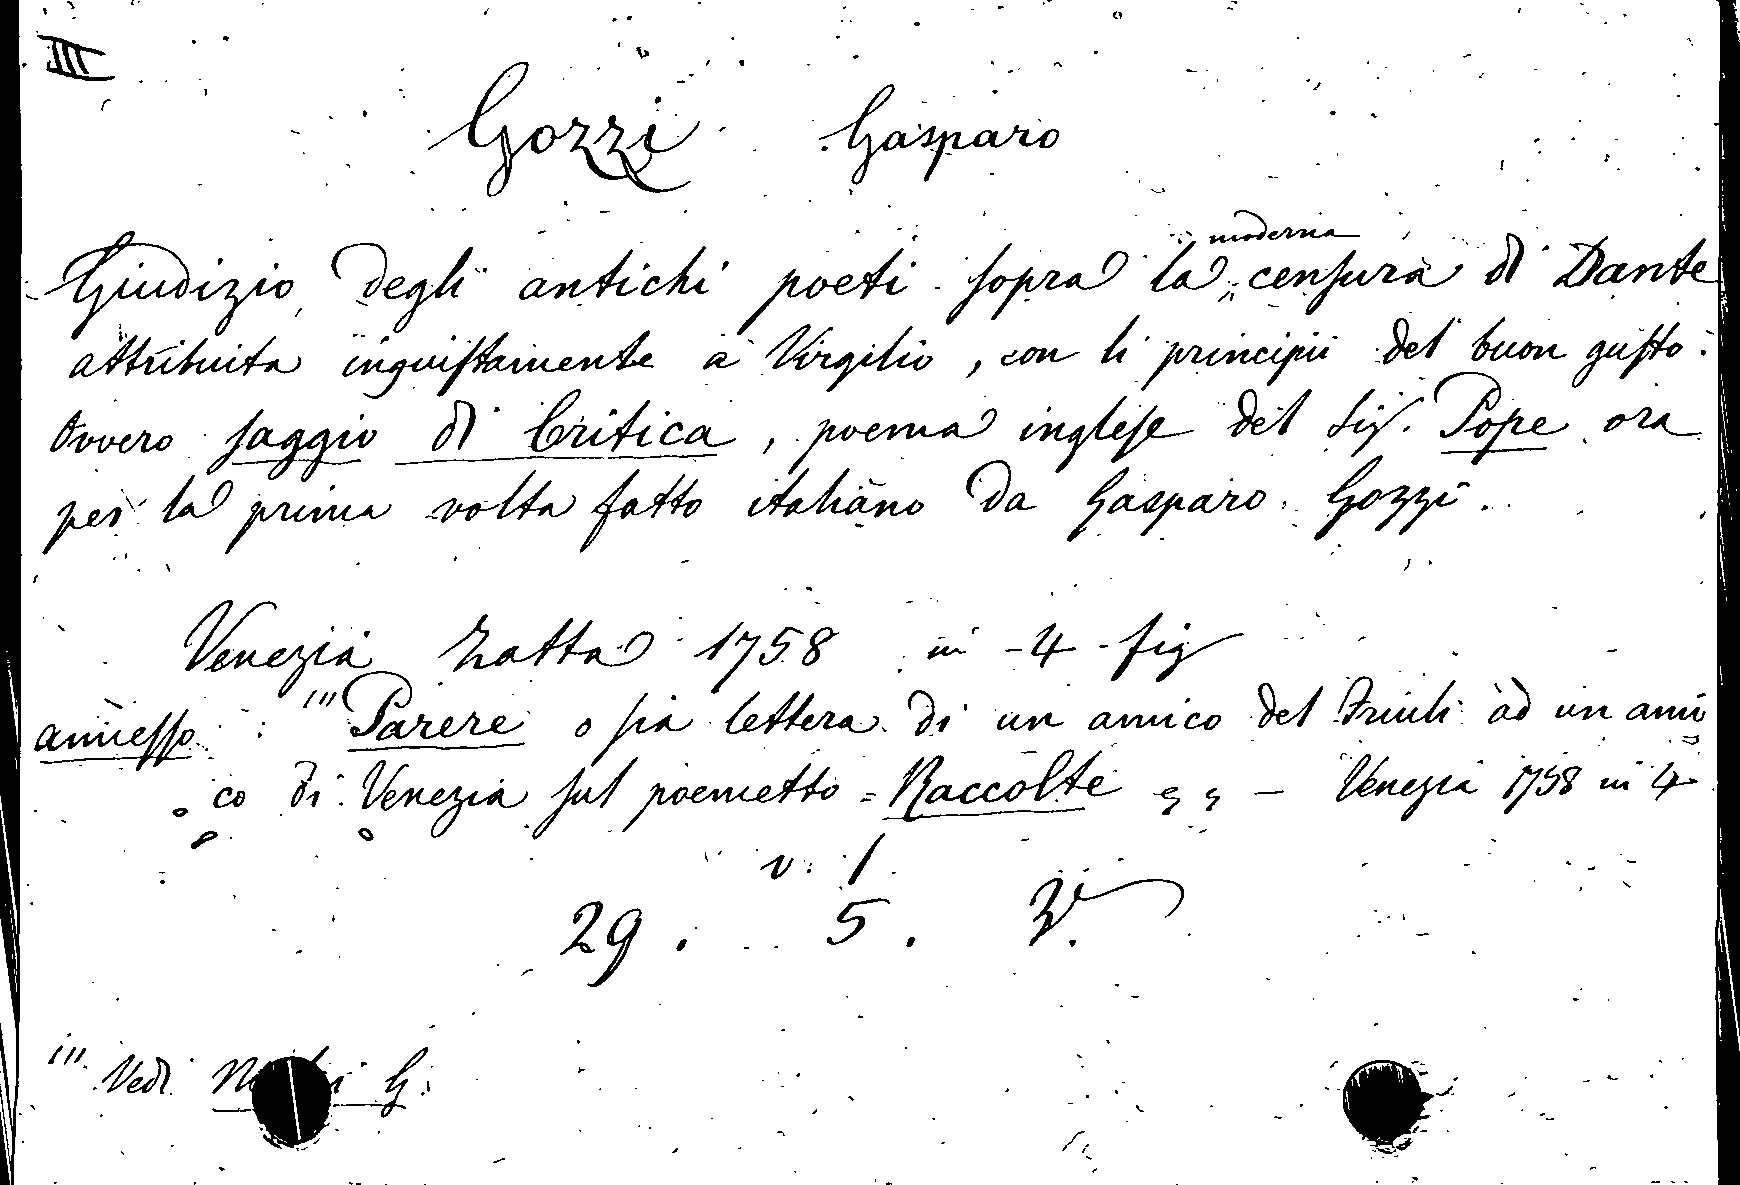 III
Gozzi Gasparo
Giudizio degli antichi poeti sopra la moderna censura di Dante
attribuita inguistamente a Virgilio, con li principii del buon gusto.
Ovvero saggio di Critica, poema inglese del Sig. Pope ora
per la prima volta fatto italiano da Gasparo Gozzi.
Venezia Zatta 1758 in-4-fig
annesso: "' Parere o sia lettera di un amico del Friuli ad un ami
co di Venezia sul poemetto = Raccolte = Venezia 1758 in 4
v. 1
29. 5.
"' Vedi G.